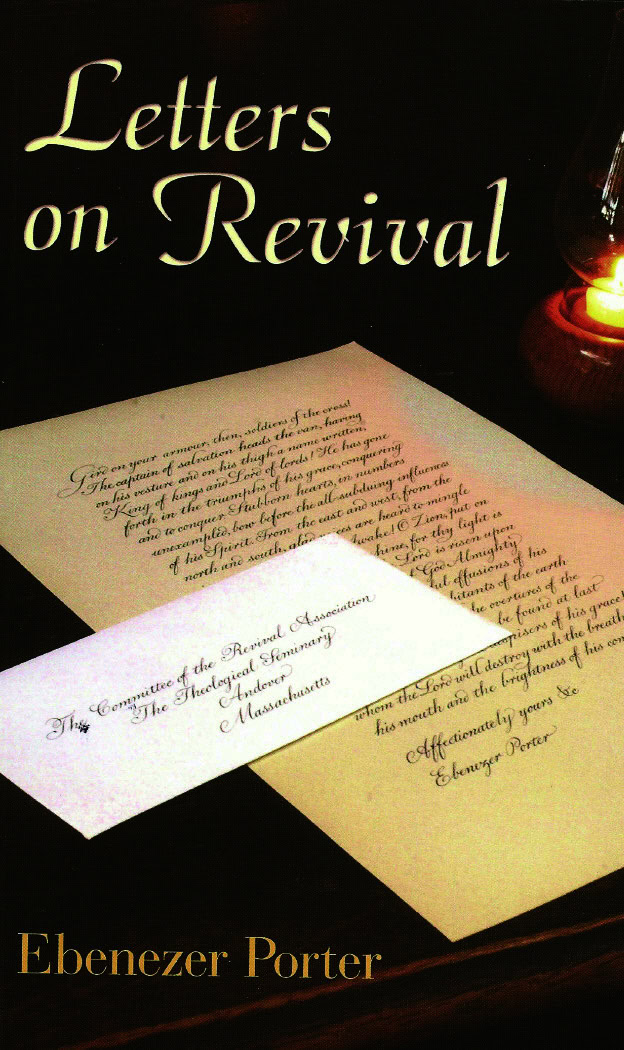 Letters
on Revival
Gird on your armour, then, soldiers of the cross!
The captain of salvation heads the van, having
on his vesture and on his thigh a name written,
King of kings and Lord of lords! He has gone
forth in the triumphs of his grace, conquering
and to conquer. Stubborn hearts, in numbers
unexampled, bow before the all-subduing influences
of his Spirit. From the east and west, from the
north and south, glad voices are heard to mingle
Awake! O Zion, put on
shine, for thy light is
Lord is risen upon
God Almighty
effusions of his
of the earth
the overtures of the
be found at last
despisers of his grace
whom the Lord will destroy with the breath
his mouth and the brightness of his
Affectionately yours &c
Ebenezer Porter
The Committee of the Revival Association
The Theological Seminary
Andover
Massachusetts
Ebenezer Porter